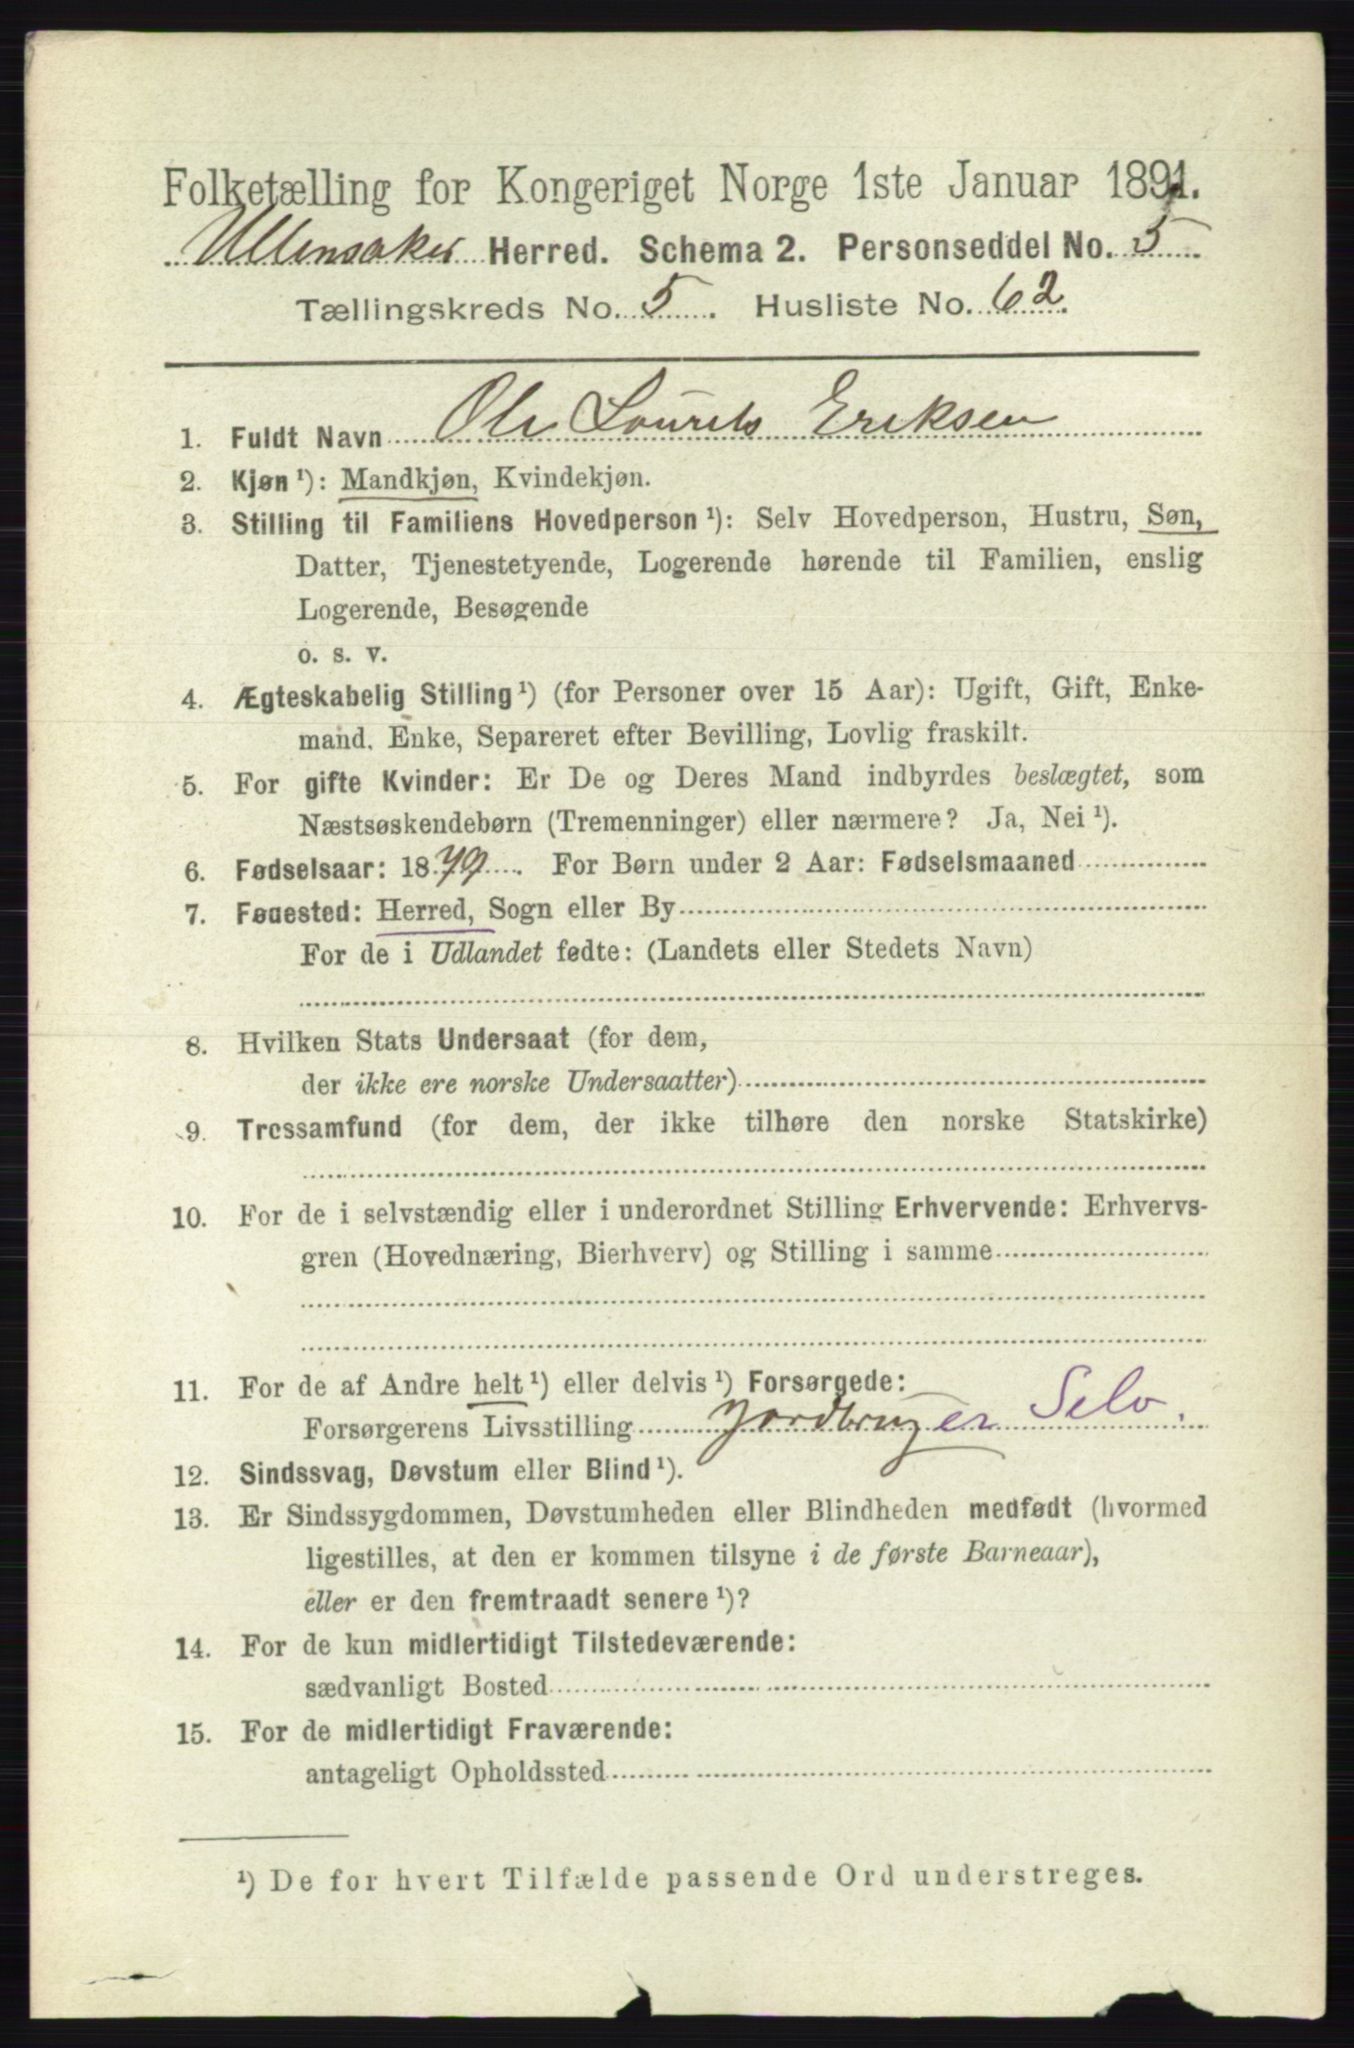 Folketælling for Kongeriget Norge 1ste Januar 1891.
Ullensaker Herred. Schema 2. Personseddel No. 5
Tællingskreds No. 5. Husliste No. 62.
1. Fuldt Navn Ole Lourits Eriksen
2. Kjøn ¹): Mandkjøn, Kvindekjøn.
3. Stilling til Familiens Hovedperson ¹): Selv Hovedperson, Hustru, Søn,
Datter, Tjenestetyende, Logerende hørende til Familien, enslig
Logerende, Besøgende
o. s. v.
4. Ægteskabelig Stilling ¹) (for Personer over 15 Aar): Ugift, Gift, Enke-
mand, Enke, Separeret efter Bevilling, Lovlig fraskilt.
5. For gifte Kvinder: Er De og Deres Mand indbyrdes beslægtet, som
Næstsøskendebørn (Tremenninger) eller nærmere? Ja, Nei ¹).
6. Fødselsaar: 1879. For Børn under 2 Aar: Fødselsmaaned
7. Føuested: Herred, Sogn eller By
For de i Udlandet fødte: (Landets eller Stedets Navn)
8. Hvilken Stats Undersaat (for dem,
der ikke ere norske Undersaatter)
9. Trossamfund (for dem, der ikke tilhøre den norske Statskirke)
10. For de i selvstændig eller i underordnet Stilling Erhvervende: Erhvervs-
gren (Hovednæring, Bierhverv) og Stilling i samme
11. For de af Andre helt ¹) eller delvis ¹) Forsørgede:
Forsørgerens Livsstilling Jordbruger Selv.
12. Sindssvag, Døvstum eller Blind ¹).
13. Er Sindssygdommen, Døvstumheden eller Blindheden medfødt (hvormed
ligestilles, at den er kommen tilsyne i de første Barneaar),
eller er den fremtraadt senere ¹)?
14. For de kun midlertidigt Tilstedeværende:
sædvanligt Bosted
15. For de midlertidigt Fraværende:
antageligt Opholdssted
¹) De for hvert Tilfælde passende Ord understreges.